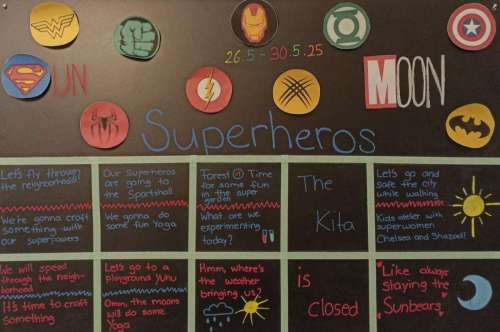 26.5 - 30.5.25
SUN
MOON
Superheros
Let's fly through
the neighborhood!
We're gonna craft
something with
our superpowers
Our Superheros
are going to
the Sportshall
We gonna do
some fun Yoga
Forest Time
for some fun
in the super
garden
What are we
experimenting
today?
The
Kita
Let's go and
safe the city
while walking
Kids atelier with
superwomen
Chelsea and Shazadi!
We will speed
through the neigh-
borhood
It's time to craft
something
Let's go to a
playground yuhu
Omm, the moons
will do some
Yoga
Hmm, where's
the weather
bringing us?
is
closed
Like always
staying the
Sunbears